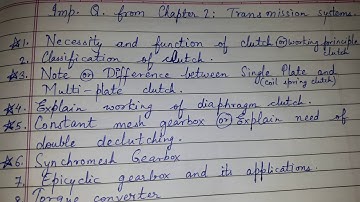 Imp. Q. from Chapter 2: Transmission systems.
*1. Necessity and function of clutch (or) working principle clutch
2. Classification of clutch.
*3. Note (or) Difference between Single Plate and (coil spring clutch)
Multi-plate clutch.
*4. Explain working of diaphragm clutch.
*5. Constant mesh gearbox (or) Explain need of
double declutching.
*6. Synchromesh Gearbox
7. Epicyclic gearbox and its applications.
8. Torque converter